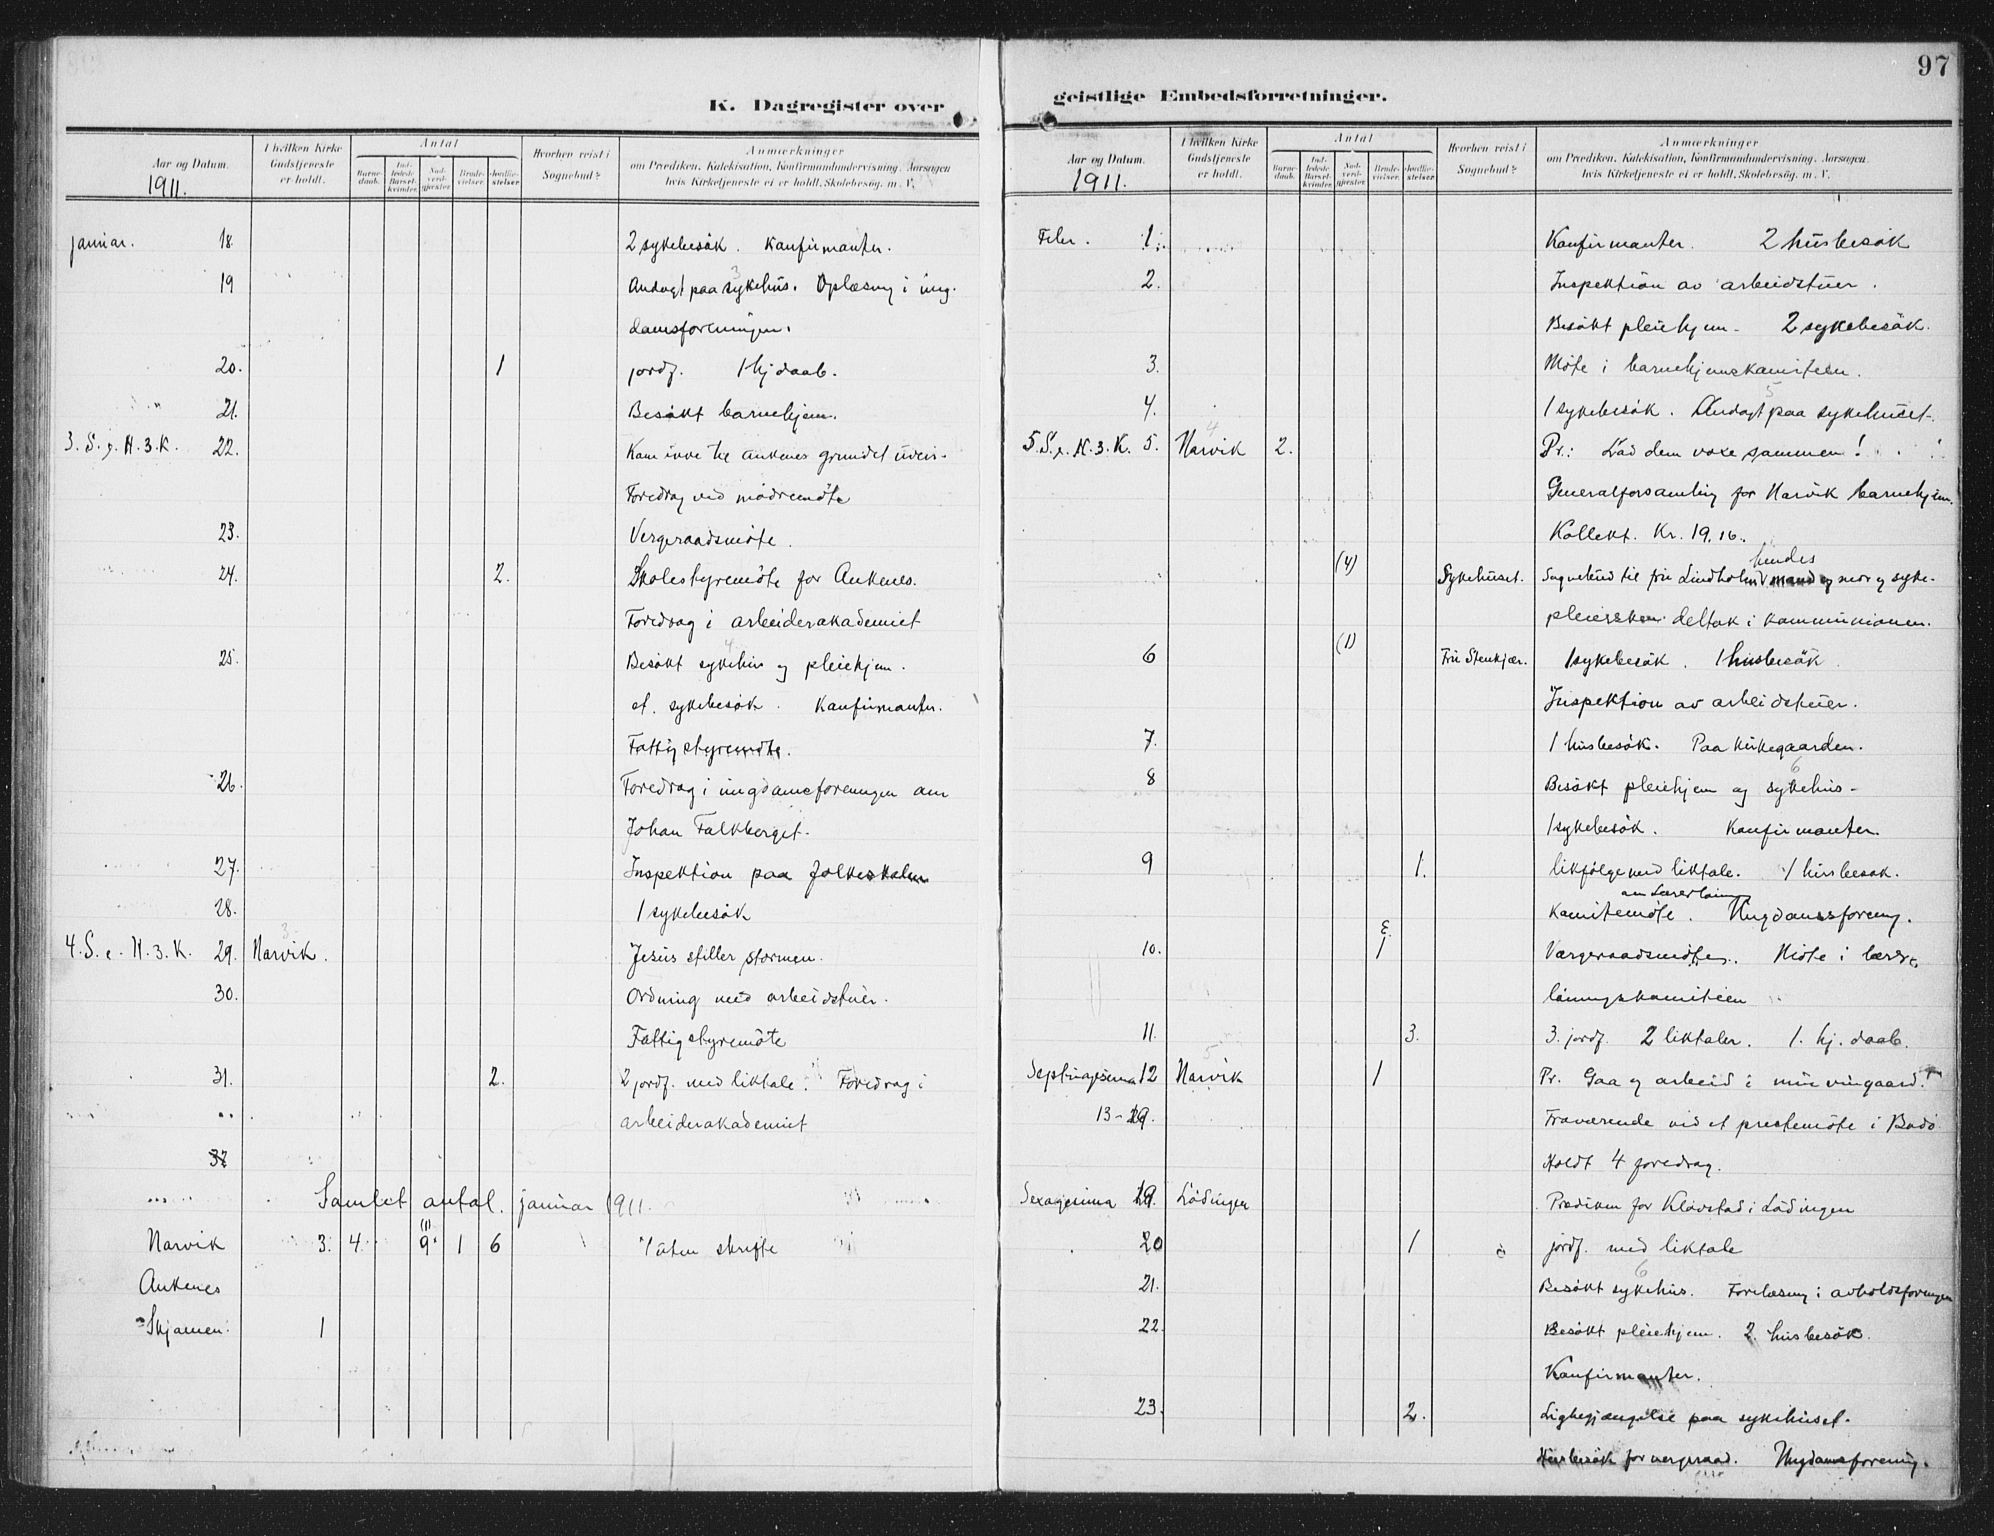 97
K. Dagregister over
Aar og Datum.
1911.
I hvilken Kirke Gudstjeneste er holdt.
Antal
Barnedaab.
Indledede Barselkvinder.
Nadverdgjester.
Brudevielser.
Jordfæstelser
Hvorhen reist i Sognebud?
Anmærkninger
om Prædiken, Katekisation, Konfirmandundervisning, Aarsagen
hvis Kirketjeneste ei er holdt, Skolebesøg, m. V.
januar. 18. 2 sykebesök. Konfirmanter.
19 Andagt paa sykehus. 3 Oplæsning i ung-
domsforeningen.
20. 1 jordf. 1 hj daab.
21. Besökt barnehjem.
3. S. e. H. 3. K. 22. Kom ikke til Ankenes grundet uveir.
Foredrag ved mödremöte
23. Vergeraadsmöte.
24. 2. Skolestyremöte for Ankenes.
Foredrag i arbeiderakademiet
25. Besökt sykehus 4 og pleiehjem.
et sykebesök. Konfirmanter.
Fattigstyremöte.
26. Foredrag i ungdomsforeningen om
Johan Falkberget.
27. Inspektion paa folkeskolen
28. 1 sykebesök
4. S. e. H. 3. K. 29. Narvik. 3. Jesus stiller stormen.
30. Ordning med arbeidstuer.
Fattigstyremöte
31. 2. 2 jordf. med liktale. Foredrag i
arbeiderakademiet
Samlet antal. januar 1911.
Narvik 3. 4 (1) 9. 1 6 1 uten skrifte
Ankenes
Skjomen. 1
geistlige Embedsforretninger.
Aar og Datum.
1911.
I hvilken Kirke Gudstjeneste er holdt.
Antal
Barnedaab.
Indledede Barselkvinder.
Nadverdgjester.
Brudevielser.
Jordfæstelser
Hvorhen reist i Sognebud?
Anmærkninger
om Prædiken, Katekisation, Konfirmandundervisning, Aarsagen
hvis Kirketjeneste ei er holdt, Skolebesøg, m. V.
Febr. 1. Konfirmanter. 2 husbesök
2. Inspektion av arbeidstuer.
Besökt pleiehjem. 2 sykebesök.
3. Möte i barnehjemskomiteen.
4. 1 sykebesök. Andagt paa 5 sykehuset.
5. S. e. H. 3. K. 5. Narvik 4 2. Pr.: Lad dem voxe sammen!
Generalforsamling for Narvik barnehjem.
Kollekt. Kr. 19.16.
(4) Sykehuset. Sognebud til fru Lindholm hendes mand og mor og syke-
pleiersken deltok i kommunionen.
6 (1) Fru Stenkjær. 1 sykebesök. 1 husbesök.
Inspektion av arbeidstuer.
7. 1 husbesök. Paa kirkegaarden.
8 Besökt pleiehjem og 6 sykehus.
1 sykebesök. Konfirmanter.
9 1. likfölge med liktale. 1 husbesök.
Komitemöte. Ungdomsforening.
10. 1 Vergeraadsmöte. Möte i lærer-
lönningskomiteen
11. 3. 3. jordf. 2 liktaler. 1. hj. daab.
Septuagesima 12 Narvik 5 1 Pr. Gaa og arbeid i min vingaard.
13-19. Fraværende ved et prestemöte i Bodö
Holdt 4 foredrag.
Sexagesima 19. Lödingen Prædiken for Klovstad i Lödingen
20 1 jordf. med liktale
21. Besökt sykehus. 6 Forelæsning i avholdsforeningen
22. Besökt pleiehjem. 2. husbesök.
Konfirmanter.
23. 2. paa sykehuset.
Husbesök for vergeraad. Ungdomsforening.